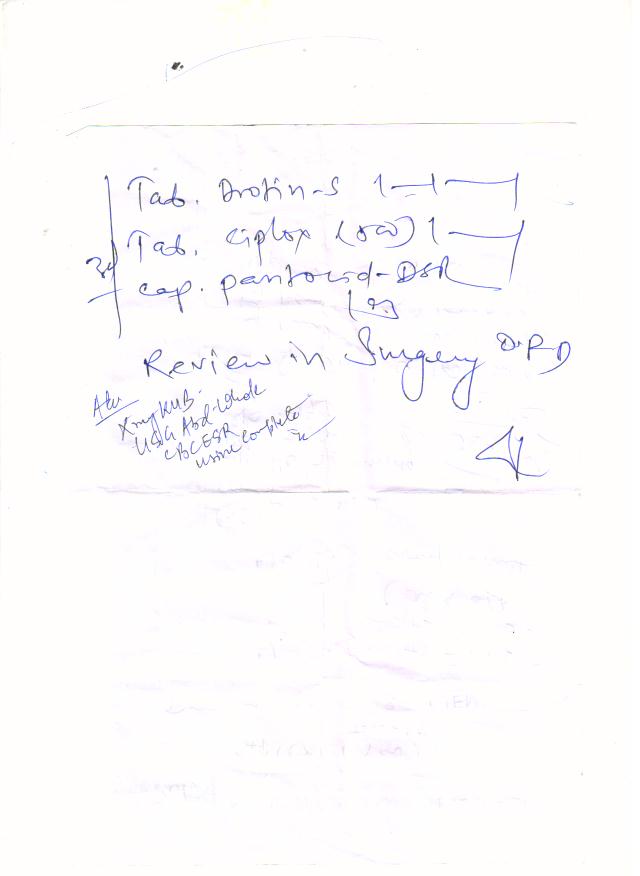 Tab. Drotin-S 1—1—
Tab. Ciplox (500) 1—
3d
Cap. Pantocid-DSR
Review in Surgery OPD
Adv
Xray KUB
USG Abd-whole
CBC ESR
urine complete